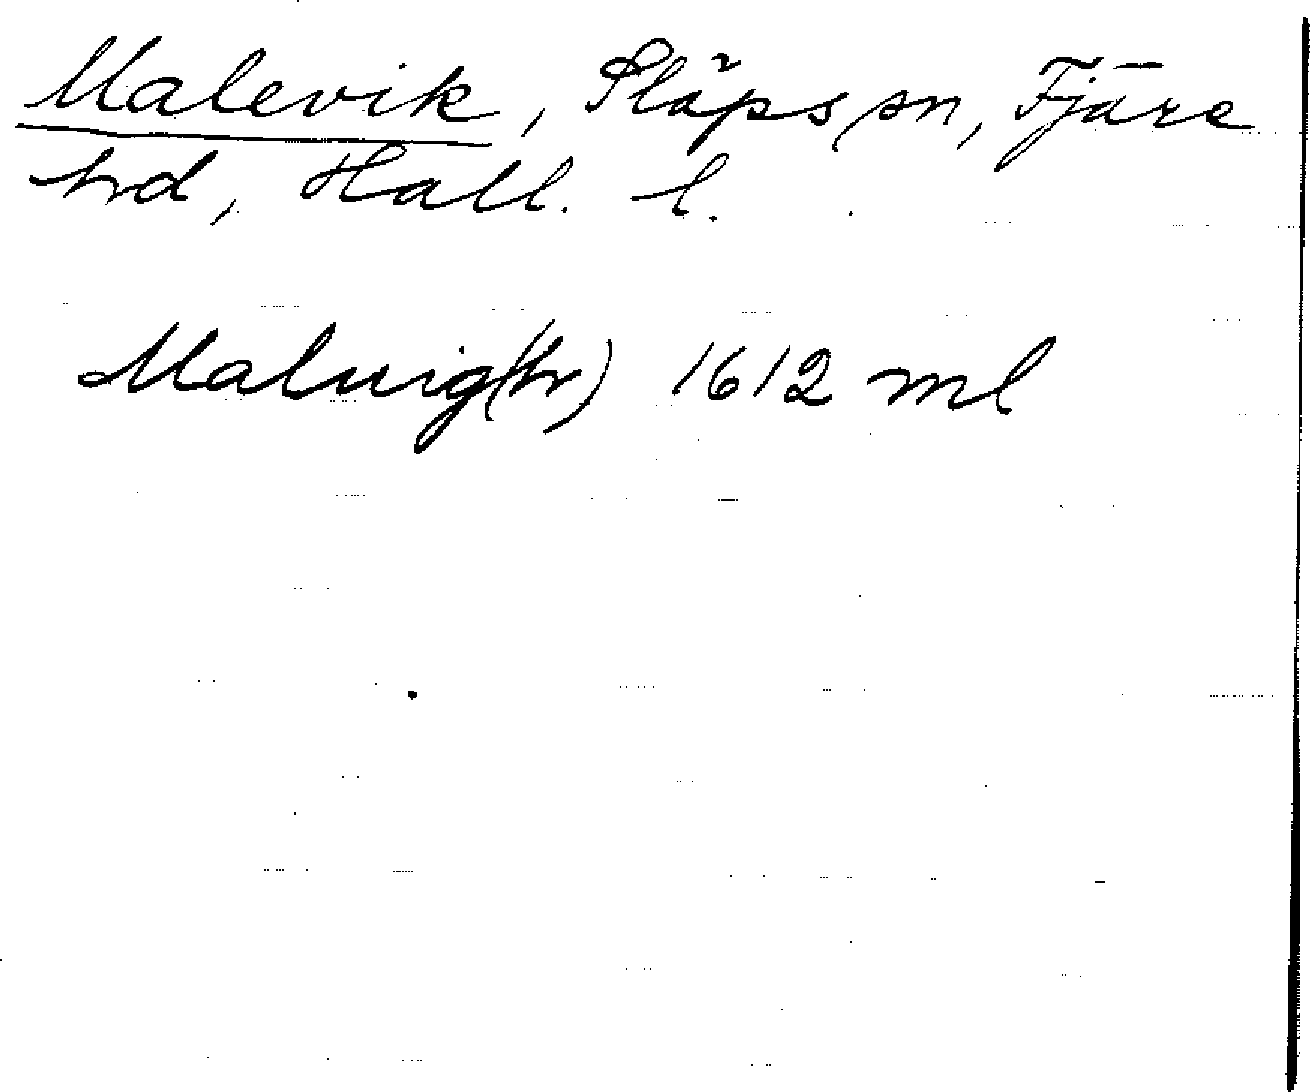 Malevik, Släps sn, Fjäre
hd, Hall. l.
Maluig(hr) 1612 ml